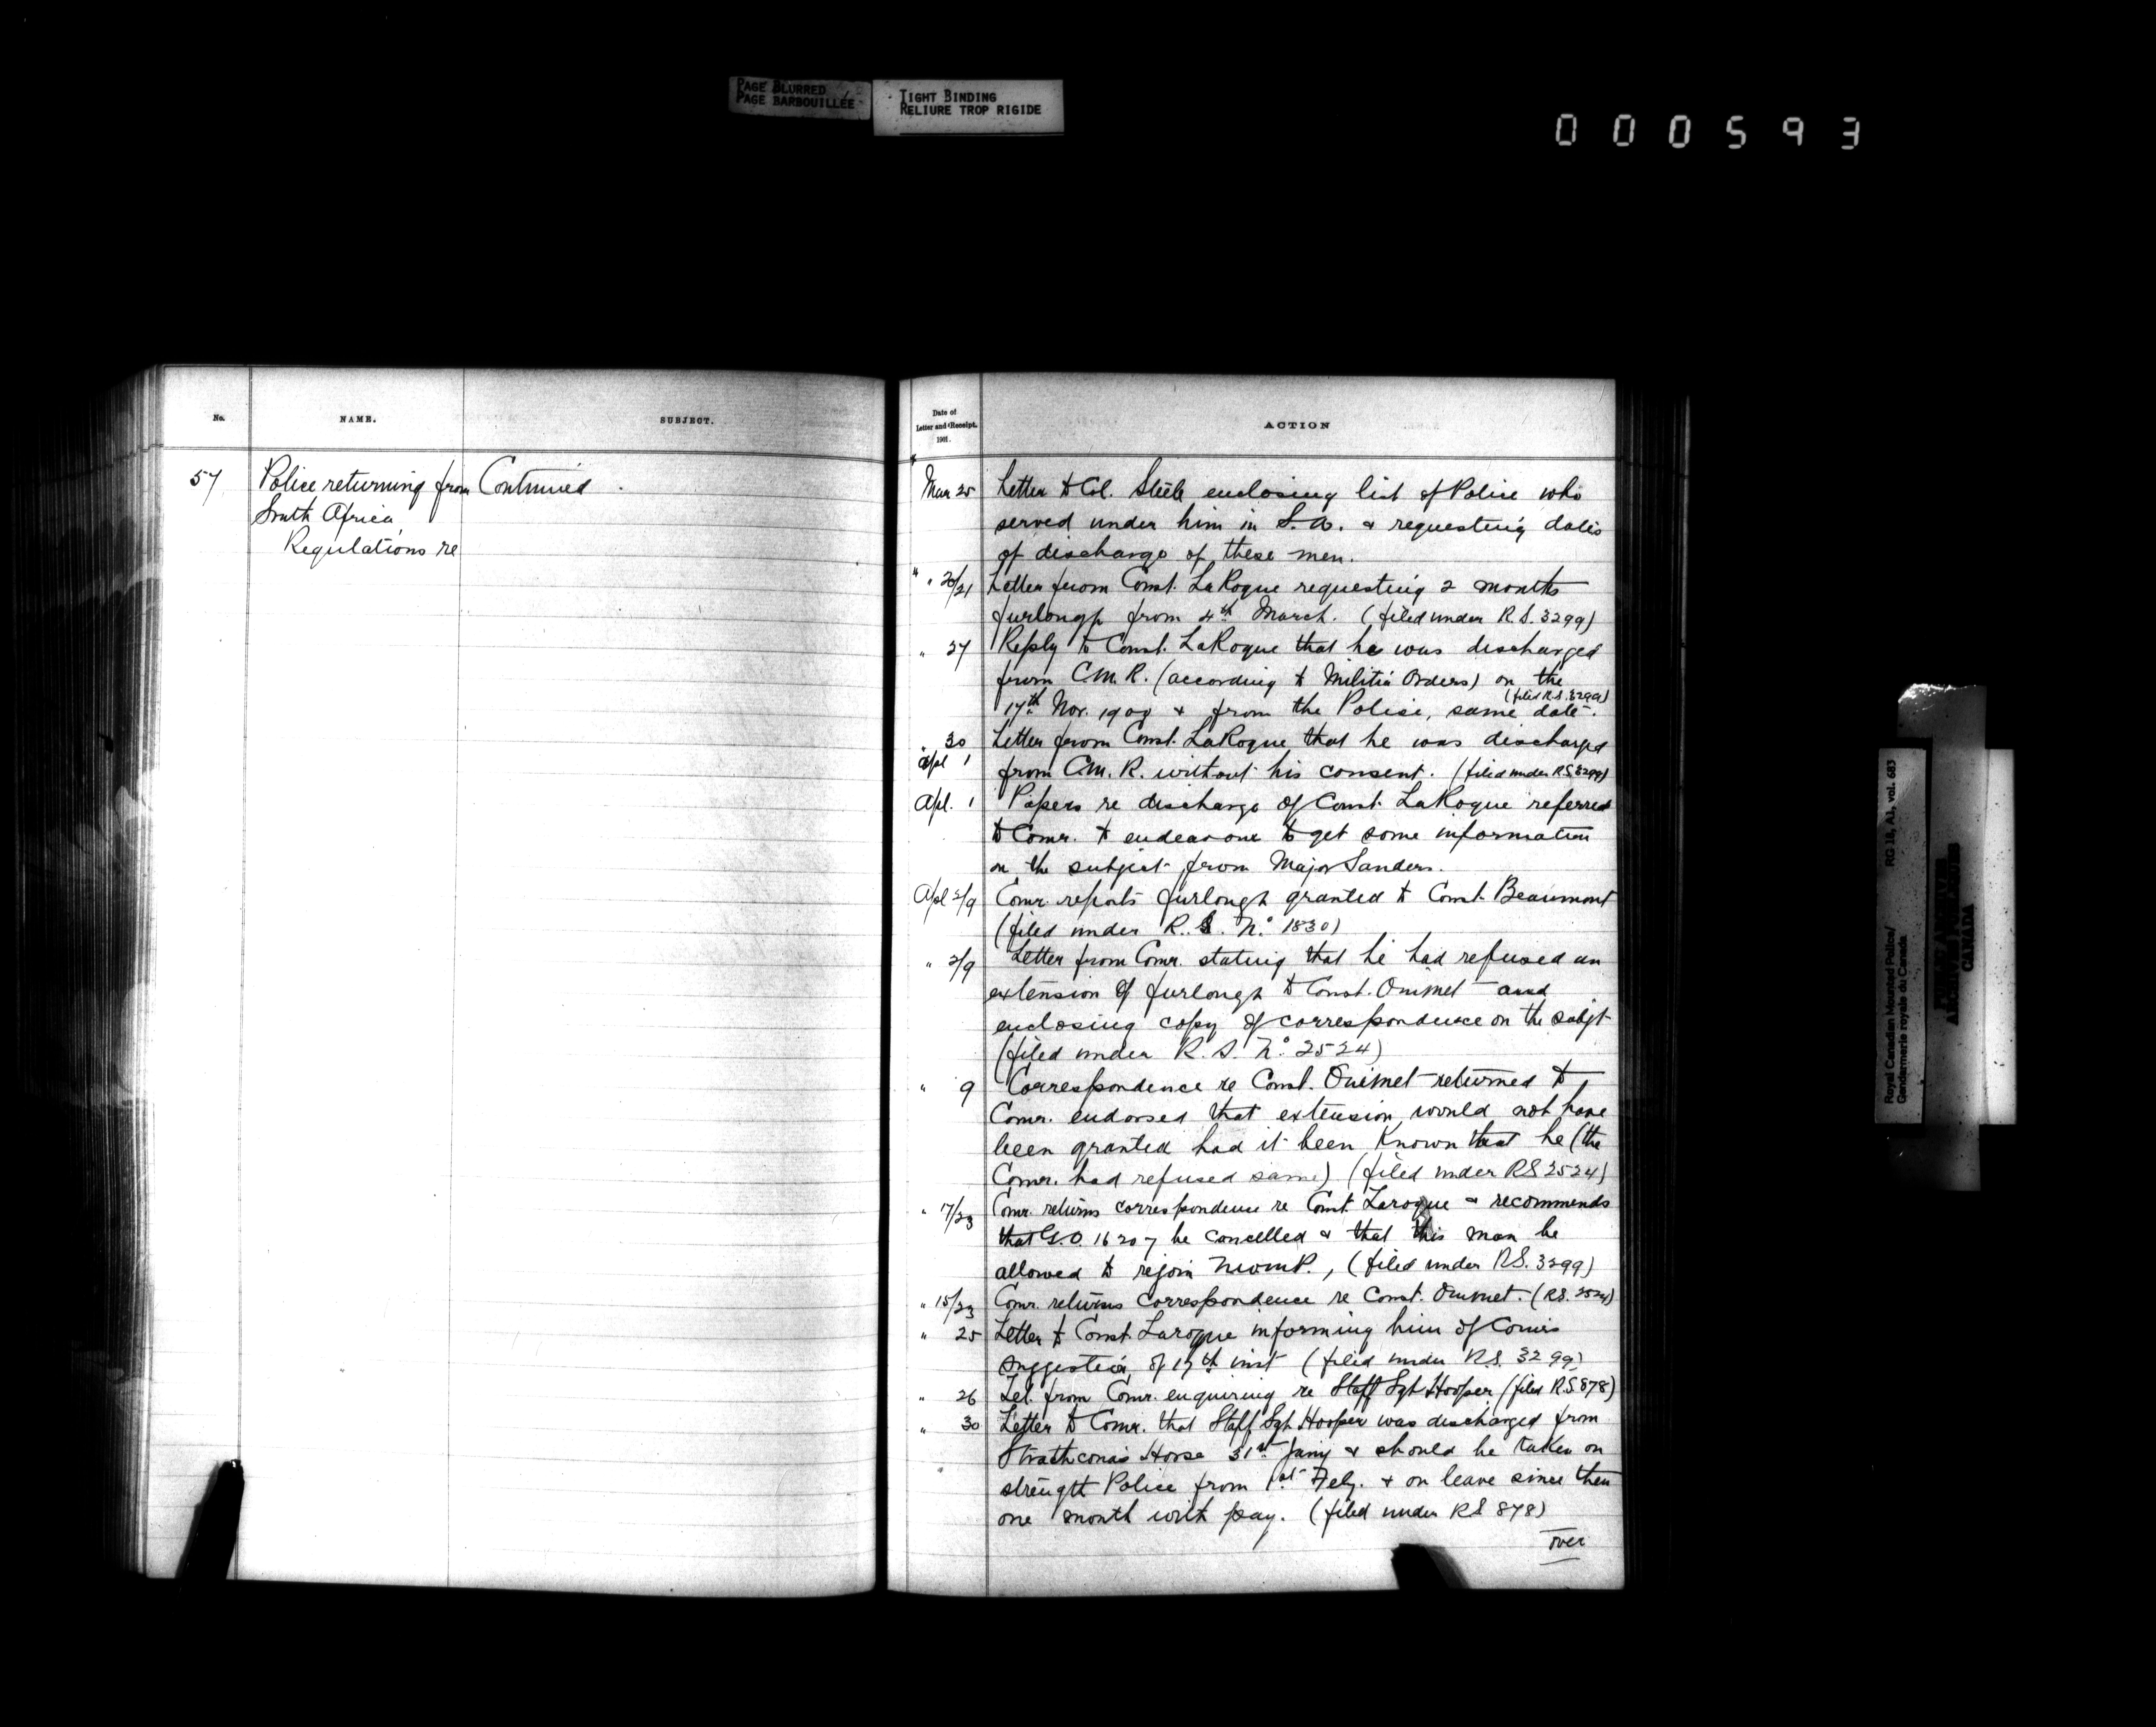 PAGE BLURRED
PAGE BARBOUILLÉE
TIGHT BINDING
RELIURE TROP RIGIDE
000593
No.
NAME.
SUBJECT.
57 Police returning from Continued
South Africa,
Regulations re
Date of
Letter and Receipt.
1901.
ACTION
Mar 25 Letter to Col. Steele enclosing list of Police who
served under him in S.A. & requesting dates
of discharge of these men.
" " 20/21 Letter from Const. LaRoque requesting 2 months
furlough from 4th March. (filed under R.S. 3299)
" 27 Reply to Const. LaRoque that he was discharged
from C.M.R. (according to Militia Orders) on the
(filed R.S. 3299)
17th Nov. 1900 & from the Police, same date.
" 30 Letter from Const. LaRoque that he was discharged
Apl 1 from C.M.R. without his consent. (filed under R.S. 3299)
Apl. 1 Papers re discharge of Const. LaRoque referred
to Comr. to endeavour to get some information
on the subject from Major Sanders.
Apl 2/9 Comr. reports furlough granted to Const. Beaumont
(filed under R.S. No. 1830)
" 2/9 Letter from Comr. stating that he had refused an
extension of furlough to Const. Ouimet and
enclosing copy of correspondence on the subjt
(filed under R.S. No. 2524)
" 9 Correspondence re Const. Ouimet returned to
Comr. endorsed that extension would not have
been granted had it been known that he (the
Comr. had refused same) (filed under RS 2524)
" 17/23 Comr. returns correspondence re Const. Laroque & recommends
that G.O. 16207 be cancelled & that this man be
allowed to rejoin NWMP., (filed under RS. 3299)
" 15/23 Comr. returns correspondence re Const. Ouimet. (RS. 2524)
" 25 Letter to Const. Laroque informing him of Comrs
suggestion of 17th inst (filed under R.S. 3299)
" 26 Tel. from Comr. enquiring re Staff Sgt Hooper (filed R.S 878)
" 30 Letter to Comr. that Staff Sgt. Hooper was discharged from
Strathcona's Horse 31st Jany & should be taken on
strength Police from 1st Feby. & on leave since then
one month with pay. (filed under RS 878)
over
Royal Canadian Mounted Police/ RG 18, A1, vol. 683
Gendarmerie royale du Canada
CANADA